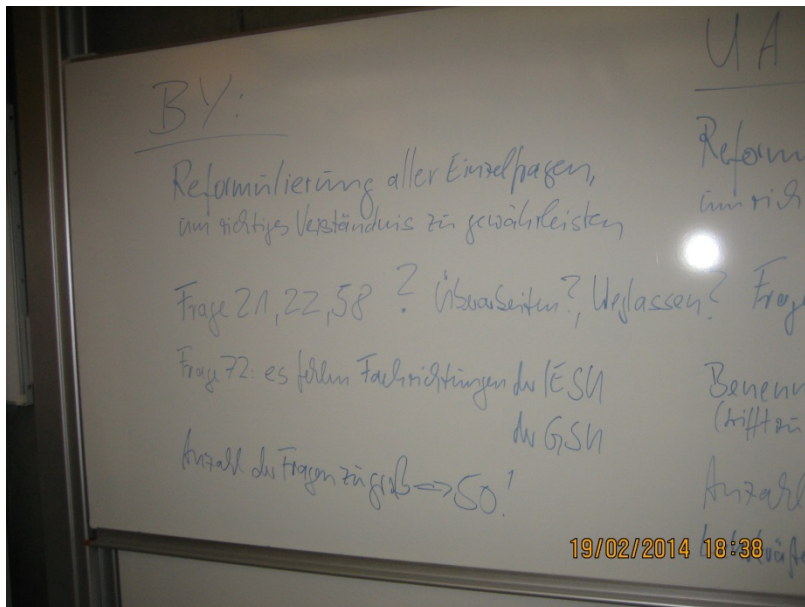 BY:
Reformulierung aller Einzelfragen,
um richtiges Verständnis zu gewährleisten
Frage 21, 22, 58 ? Überarbeiten?, Weglassen?
Frage 72: es fehlen Fachrichtungen der IESH
der GSH
Anzahl der Fragen zu groß <=> 50!
UA
Reform
um rich
Frage
Benenn
(trifft zu
Anzahl
19/02/2014 18:38